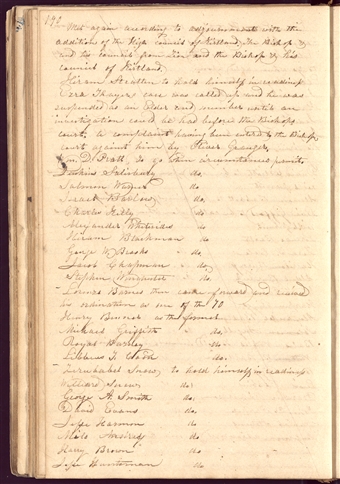 192
Met again according to adjournment with the
additions of the High Council of Kirtland, The Bishop &
and his council from Zion and the Bishop & his
council of Kirtland
Hiram Stratten to hold himself in readiness
Ezra Thayers case was called up and he was
suspended as an Elder and member until an
investigation could be had before the Bishops
court, a complaint having been entered to the Bishop
court against him by Oliver Granger.
Wm. D. Pratt, to go when circumstances permit.
Salsbury do.
Salmon Warner do.
Israel Barlow do.
Charles Kelly do.
Alexander Whitesides do.
Hiram Blackman do.
George W. Brooks do.
Jacob Chapman do.
Stephen Winchester do.
Lorenzo Barnes then came forward and received
his ordination as one of the 70
Henry Benner as the former
Michael Griffith do.
Royal Barney do.
Libbeus T. Coon do.
Zerubbabel Snow, to hold himself in readiness
Willard Snow do.
George A. Smith do.
David Evans do.
Jesse Harmon do.
Milo Andrus do.
Harry Brown do.
Jesse Huntsman do.